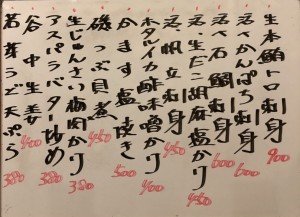 生本鮪トロ刺身 900
活〆かんぱち刺身 600
活〆石鯛刺身 600
活生だこ胡麻塩がけ 450
活帆立刺身 450
ホタルイカ酢味噌がけ 400
かます塩焼き 500
磯つぶ貝煮 450
生じゅんさい梅肉がけ 380
アスパラバター炒め 380
谷中生姜 400
若芽うど天ぷら 380